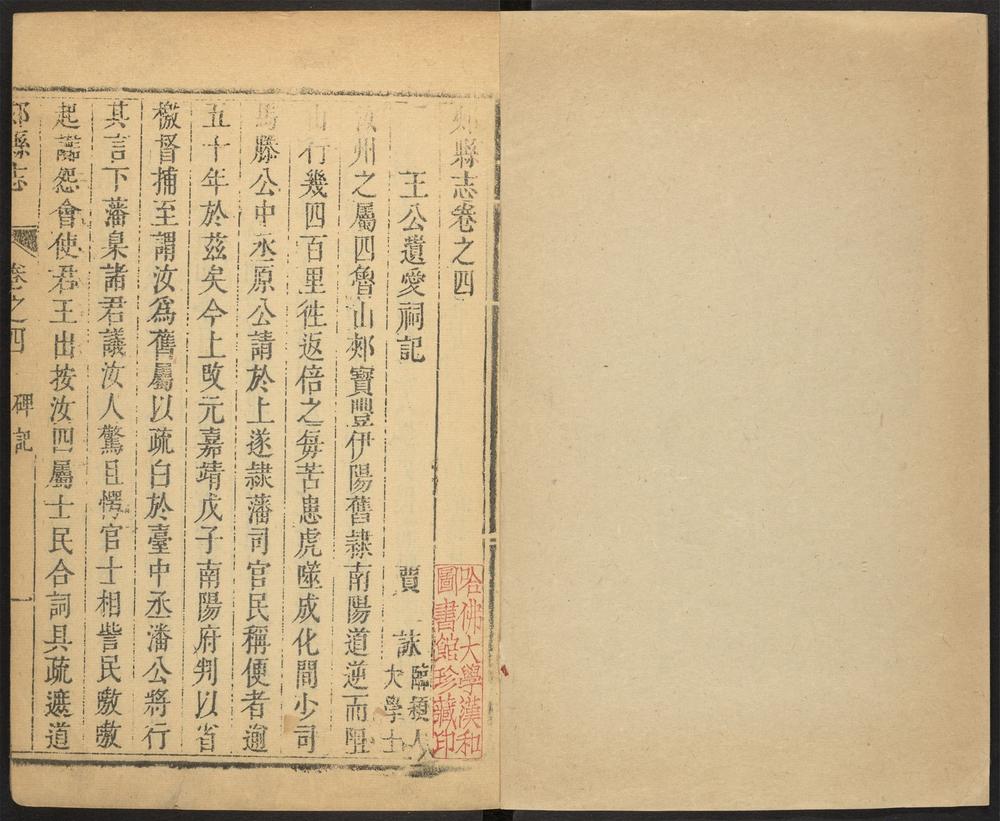 郟縣志卷之四
王公遺愛祠記
賈詠臨潁人大學士
汝州之屬四魯山郟寶豐伊陽舊隸南陽道逆而陿
山行幾四百里徃返倍之每苦患虎噬成化間少司
馬滕公中丞原公請於上遂隸藩司官民稱便者逾
五十年於茲矣今上改元嘉靖戊子南陽府判以省
檄督捕至謂汝爲舊屬以疏白於臺中丞潘公將行
其言下藩臬諸君議汝人驚且愕官士相訾民嗷嗷
起謡怨會使君王出按汝四屬士民合詞具疏遮道
郟縣志
卷之四
碑記
一
哈佛大學漢和圖書館珍藏印